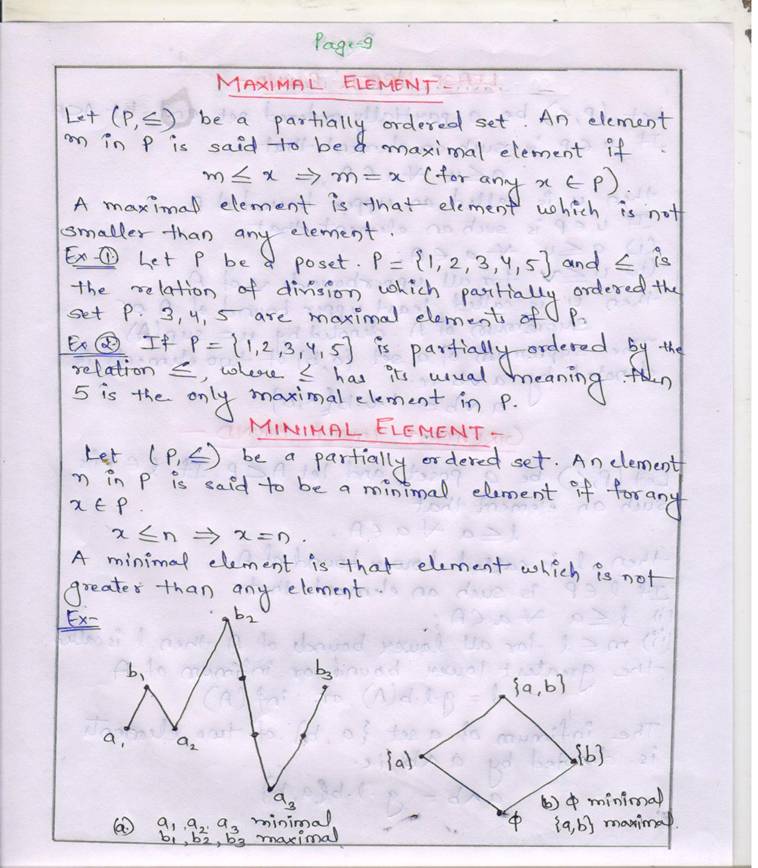 Page-9
MAXIMAL ELEMENT-
Let (P, ≤) be a partially ordered set. An element
m in P is said to be a maximal element if
m ≤ x ⇒ m = x (for any x ∈ P).
A maximal element is that element which is not
smaller than any element.
Ex-① Let P be a poset. P = {1, 2, 3, 4, 5} and ≤ is
the relation of division which partially ordered the
set P. 3, 4, 5 are maximal elements of P.
Ex ② If P = {1, 2, 3, 4, 5} is partially ordered by the
relation ≤, where ≤ has its usual meaning then
5 is the only maximal element in P.
MINIMAL ELEMENT-
Let (P, ≤) be a partially ordered set. An element
n in P is said to be a minimal element if for any
x ∈ P.
x ≤ n ⇒ x = n.
A minimal element is that element which is not
greater than any element.
Ex-
b₂
b₁
b₃
{a, b}
a₁
a₂
{a}
{b}
a₃
ϕ
(a) a₁, a₂, a₃ minimal
b₁, b₂, b₃ maximal
b) ϕ minimal
{a, b} maximal.